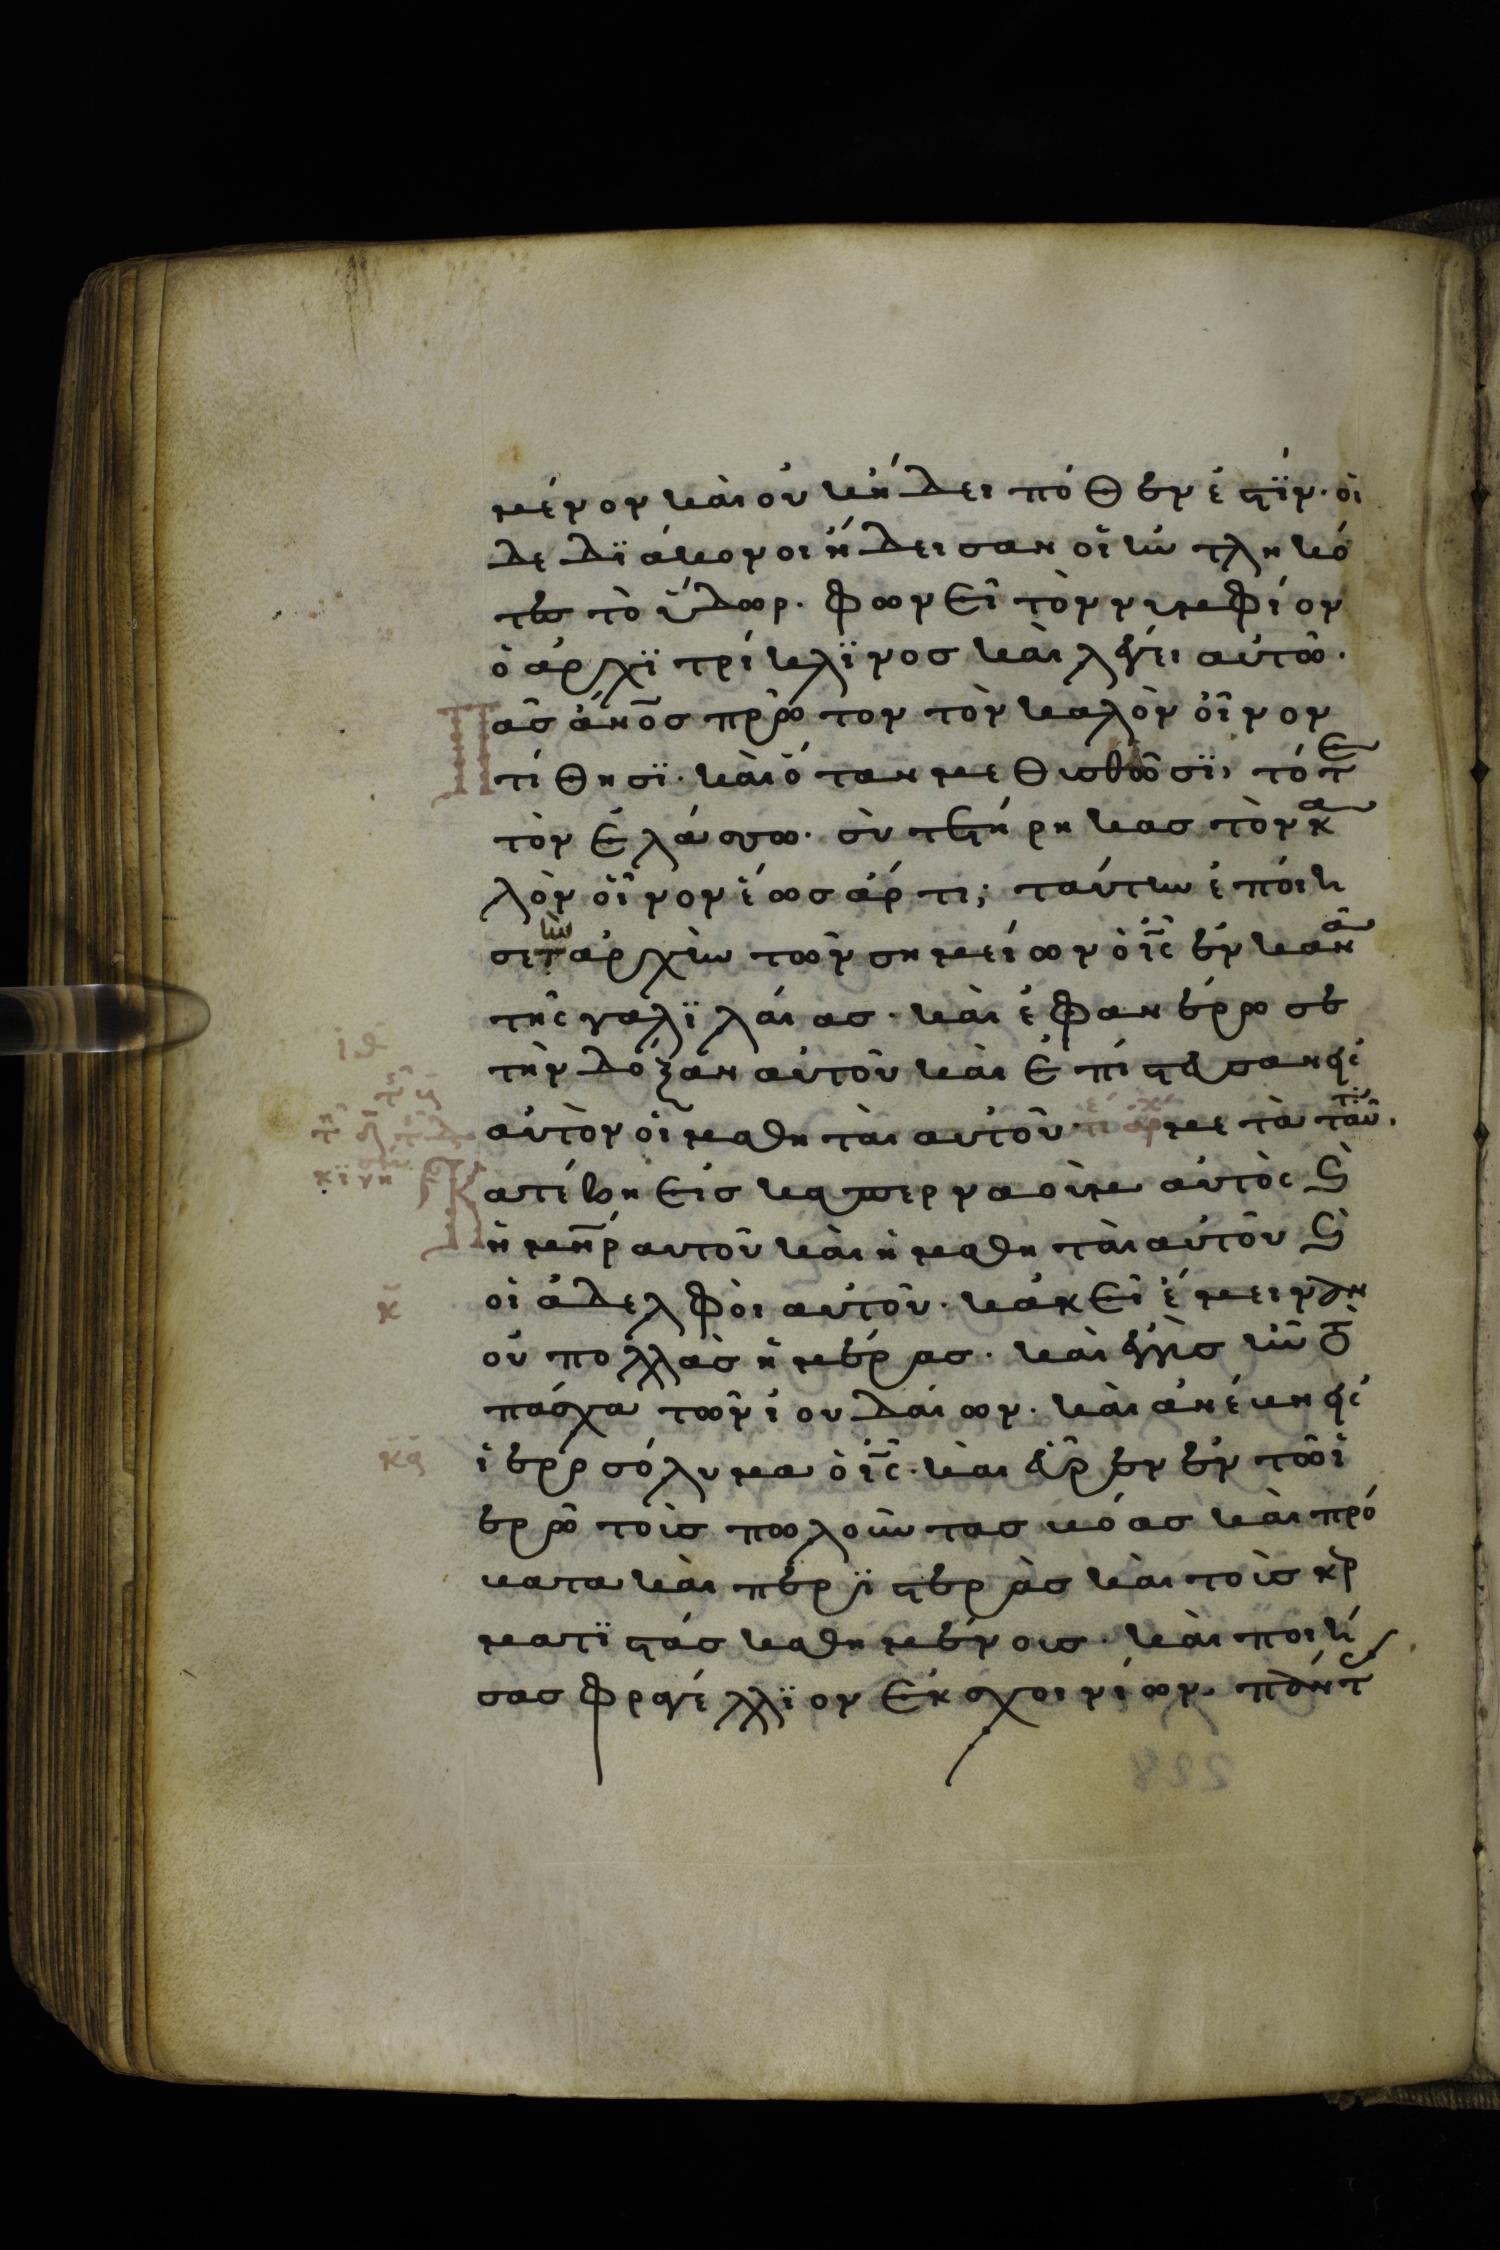 μένον καὶ οὐκ ἤδει πόθεν ἐστϊν· οἱ
δε δϊάκονοι ἤδεισαν οἱ ἠντληκό
τες το ὕδωρ. φωνεῖ τὸν νυμφίον
ὁ ἀρχϊτρίκλϊνοσ καὶ λέγει αὐτῶ·
Πᾶσ ἀνο̅σ πρῶτον τὸν καλὸν οἶνον
τίθησϊ· καὶ ὅταν μεθυσθῶσϊ, τότε
τὸν ἐλάσσω· σὺ τετήρηκασ τὸν κα
λὸν οἶνον ἕωσ ἄρτι; ταύτην ἐποίη
σε τὴν ἀρχὴν τῶν σημείων ὁ ι̅ς̅ ἐν κανᾶ
τῆς γαλϊλαίασ· καὶ ἐφανέρωσε
τὴν δόξαν αὐτοῦ καὶ ἐπίστευσαν εἰ
αὐτὸν οἱ μαθηταὶ αὐτοῦ· μετὰ ταῦτ
Κατέβη εἰσ καπερναοὺμ αὐτὸς καὶ
ἡ μη̅ρ αυτοῦ καὶ ἡ μαθηταὶ αὐτοῦ καὶ
οἱ ἀδελφὸι αὐτοῦ· κἀκεῖ ἔμεινεν
κ̅ οὐ πολλὰσ ἡμέρασ· καὶ ἐγγὺσ ἦν τὸ
πάσχα τῶν ἰουδαίων· καὶ ἀνέβη εἰ
κ̅α̅ ἱερρσόλυμα ὁ ι̅ς̅· καὶ εὗρεν ἐν τῶ ἱ
ερῶ τοὺσ πωλοῦντασ βόασ καὶ πρό
βατα καὶ περϊστερὰσ καὶ τοὺσ κερ
ματϊστάσ καθημένουσ· καὶ ποιή
σασ φραγέλλϊον ἐκ σχοινίων· πάντ
228